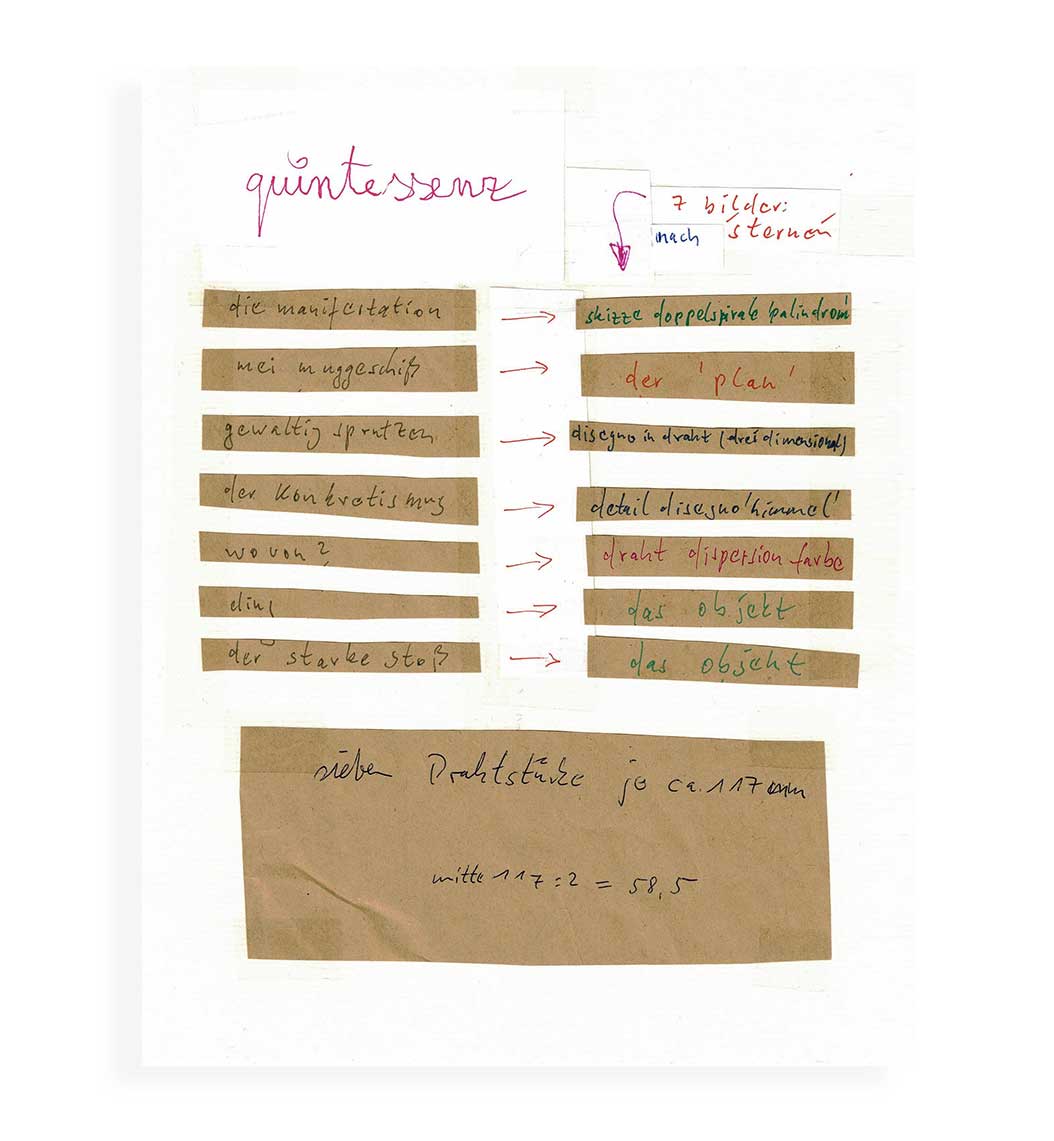 quintessenz
7 bilder:
nach sternen
die manifestation → skizze doppelspirale palindrom
mei muggeschiß → der 'plan'
gewaltig sprutzen → disegno in draht (drei dimensional)
der Konkretismus → detail disegno 'himmel'
wovon? → draht dispersion farbe
ding → das objekt
der starke stoß → das objekt
sieben Drahtstücke je ca. 117 mm
mitte 117 : 2 = 58,5